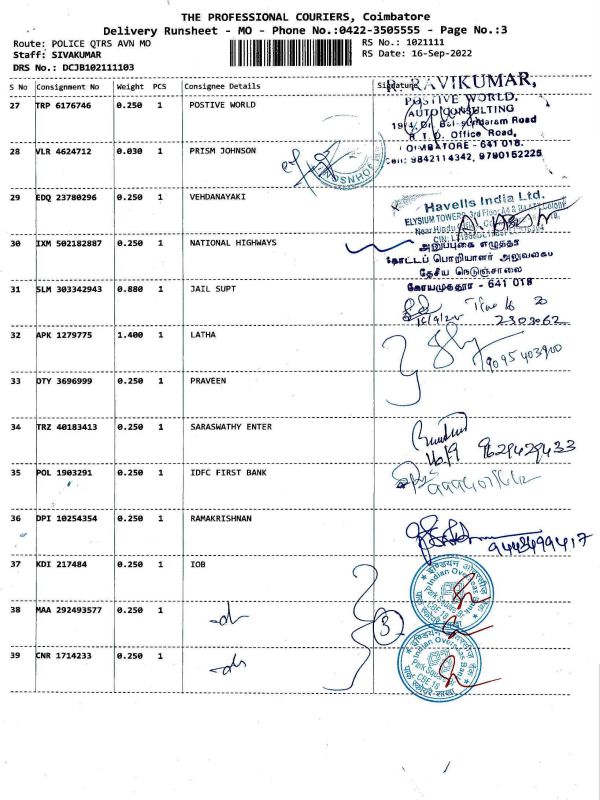 THE PROFESSIONAL COURIERS, Coimbatore
Delivery Runsheet - MO - Phone No.:0422-3505555 - Page No.:3
Route: POLICE QTRS AVN MO RS No.: 1021111
Staff: SIVAKUMAR RS Date: 16-Sep-2022
DRS No.: DCJB102111103
S No Consignment No Weight PCS Consignee Details Signature
R. RAVIKUMAR,
27 TRP 6176746 0.250 1 POSTIVE WORLD
POSTIVE WORLD,
AUTO CONSULTING
Sundaram Road
R.T.O. Office Road,
COIMBATORE - 641 018.
28 VLR 4624712 0.030 1 PRISM JOHNSON
Cell: 9842114342, 9790152225
JOHNSON
29 EDQ 23780296 0.250 1 VEHDANAYAKI
Havells India Ltd.
ELYSIUM TOWERS, 3rd Floor,
Near Hindu
30 IXM 502182887 0.250 1 NATIONAL HIGHWAYS
அனுப்புகை எழுத்தர்
கோட்டப் பொறியாளர் அலுவலகம்
தேசிய நெடுஞ்சாலை
கோயமுத்தூர் - 641 018
31 SLM 303342943 0.880 1 JAIL SUPT
16/9/22
2303062
32 APK 1279775 1.400 1 LATHA
9095403900
33 OTY 3696999 0.250 1 PRAVEEN
34 TRZ 40183413 0.250 1 SARASWATHY ENTER
16/9 9629429433
35 POL 1903291 0.250 1 IDFC FIRST BANK
36 DPI 10254354 0.250 1 RAMAKRISHNAN
37 KDI 217484 0.250 1 IOB
इण्डियन ओवरसीज़ बैंक
Indian Overseas Bank
Park Square Br.
CBE 18
38 MAA 292493577 0.250 1
3
39 CNR 1714233 0.250 1
इण्डियन ओवरसीज़ बैंक
Indian Overseas Bank
Park Square Br.
CBE 18